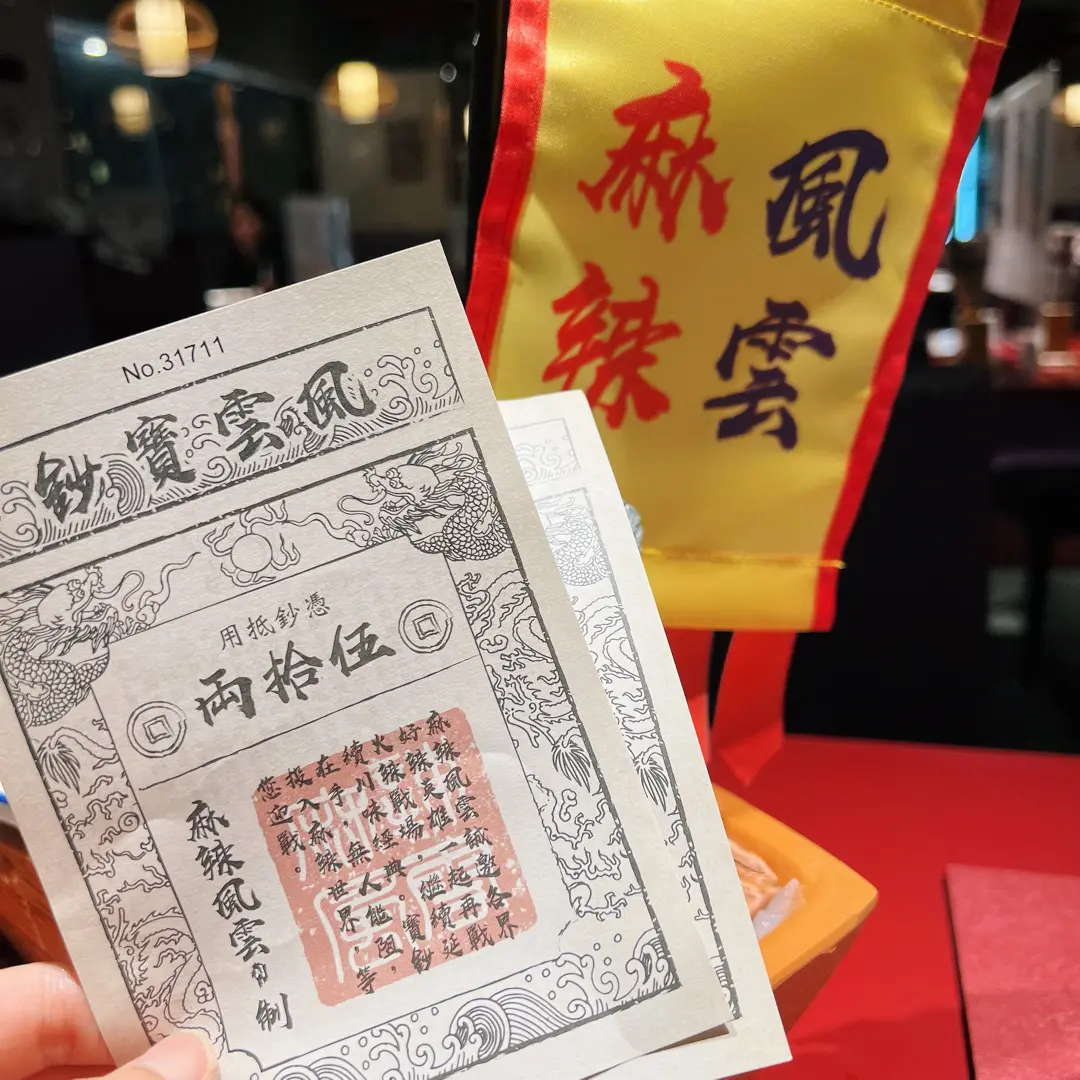 麻辣
風雲
No.31711
風雲寶鈔
憑鈔抵用
伍拾兩
麻辣風雲誠邀各界
好辣英雄一起再戰
火辣戰場。繼續延
續川味經典。寶鈔
在手無人能阻，
投入麻辣世界，等
您迎戰
麻辣風雲印制